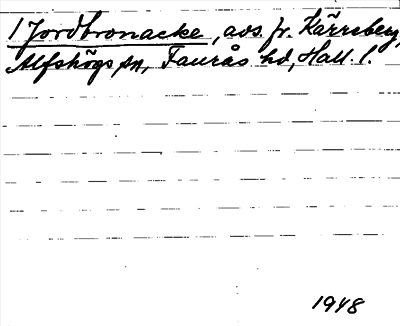 1 Jordbronacke, avs. fr. Kärreberg,
Alfshögs sn, Faurås hd, Hall. l.
1948